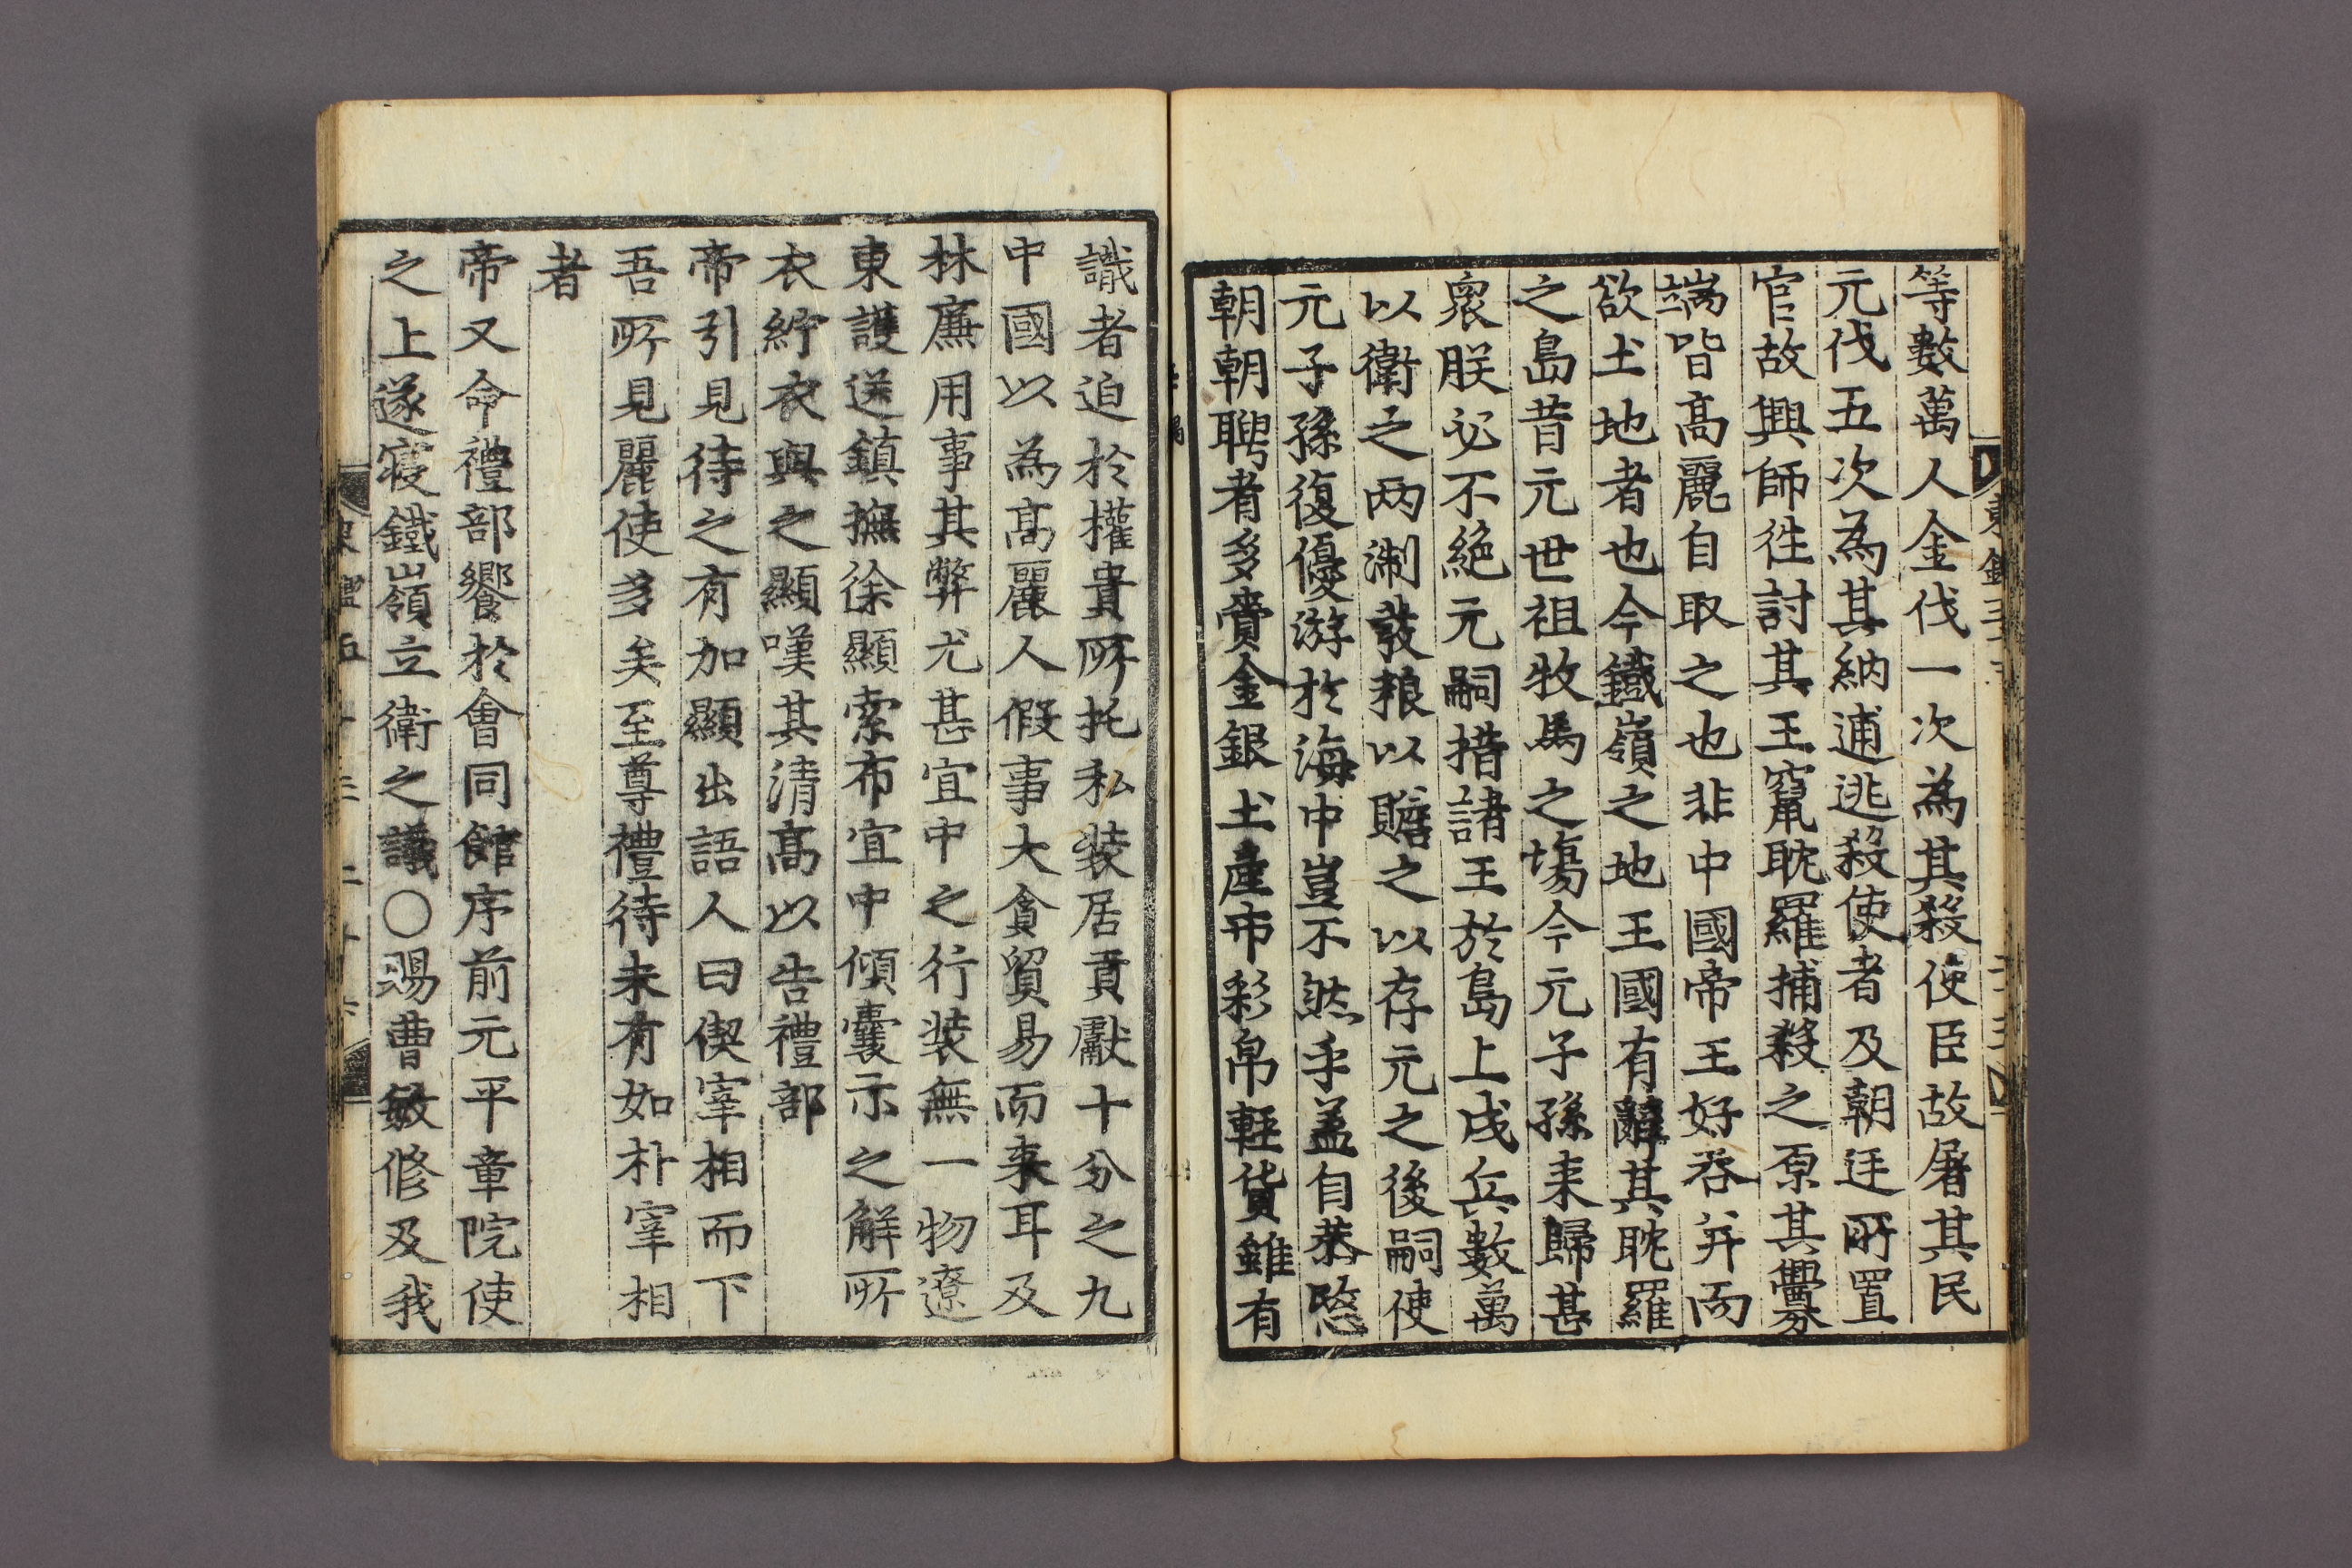 等數萬人金伐一次為其殺使臣故屠其民
元伐五次為其納逋逃殺使者及朝廷所置
官故興師徃討其王竄耽羅捕殺之原其釁
端皆髙麗自取之也非中國帝王好吞并而
欲土地者也今鐵嶺之地王國有辭其耽羅
之島昔元世祖牧馬之塲今元子孫来歸甚
衆朕必不絶元嗣措諸王於島上戍兵數萬
以衛之两淛發粮以贍之以存元之後嗣使
元子孫復優游於海中豈不然乎盖自恭愍
朝朝聘者多賫金銀土產布彩帛輕貨雖有
識者迫於權貴所托私装居貢獻十分之九
中國以為髙麗人假事大貪貿易而来耳及
林廉用事其弊尤甚宜中之行装無一物遼
東護送鎮撫徐顯索布宜中傾囊示之解所
衣紵衣與之顯嘆其清髙以告禮部
帝引見待之有加顯出語人曰偰宰相而下
吾所見麗使多矣至尊禮待未有如朴宰相
者
帝又命禮部饗於會同館序前元平章院使
之上遂寝鐵嶺立衛之議〇賜曹敏修及我